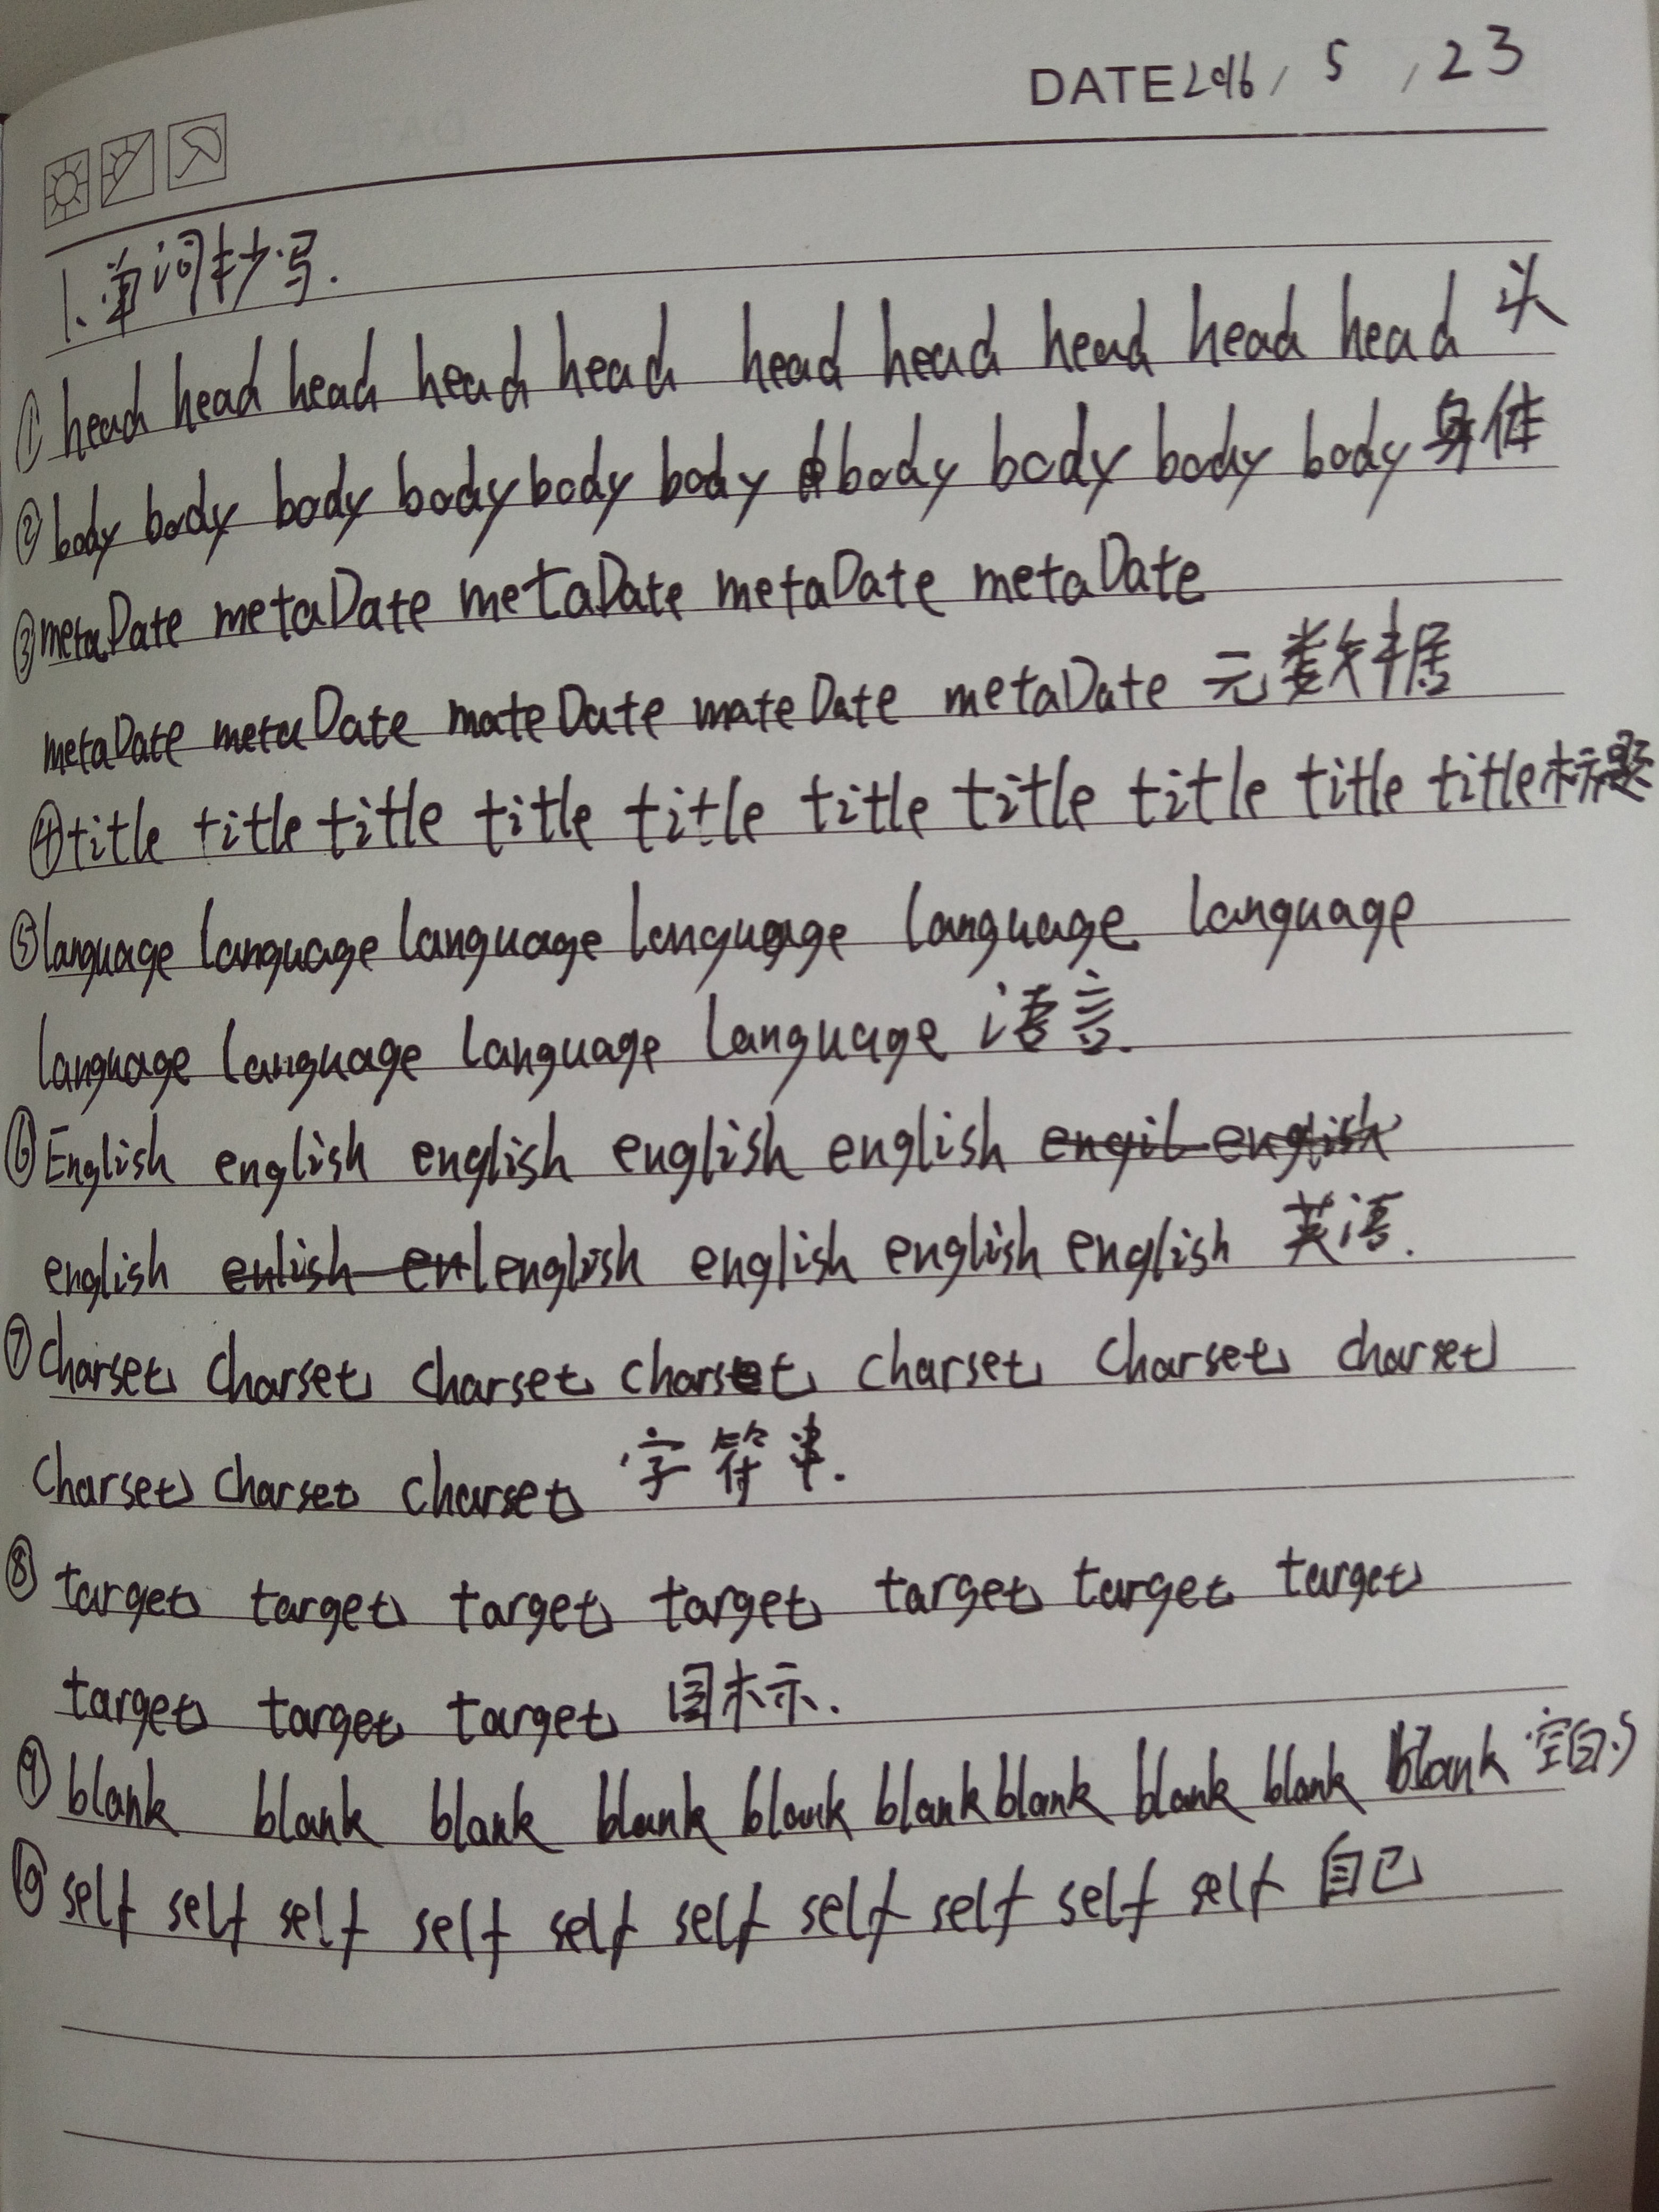 DATE 2016 / 5 / 23
1、单词抄写.
① head head head head head head head head head head 头
② body body body body body body body body body body 身体
③ metaDate metaDate metaDate metaDate metaDate
metaDate metaDate mateDate mateDate metaDate 元数据
④ title title title title title title title title title title 标题
⑤ language language language language language language
language language language language 语言.
⑥ English english english english english engil english
english enlish en english english english english 英语.
⑦ charset charset charset charset charset charset charset
charset charset charset 字符串.
⑧ target target target target target target target
target target target 图标示.
⑨ blank blank blank blank blank blank blank blank blank blank 空白的
⑩ self self self self self self self self self self 自己